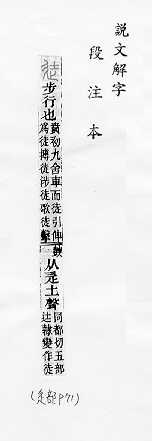 説文解字
段注本
徒 步行也
賁初九舍車而徒引伸
爲徒搏徒涉徒歌徒擊鼓
从辵土聲
同都切五部
辻隸變作徒
(辵部P71)